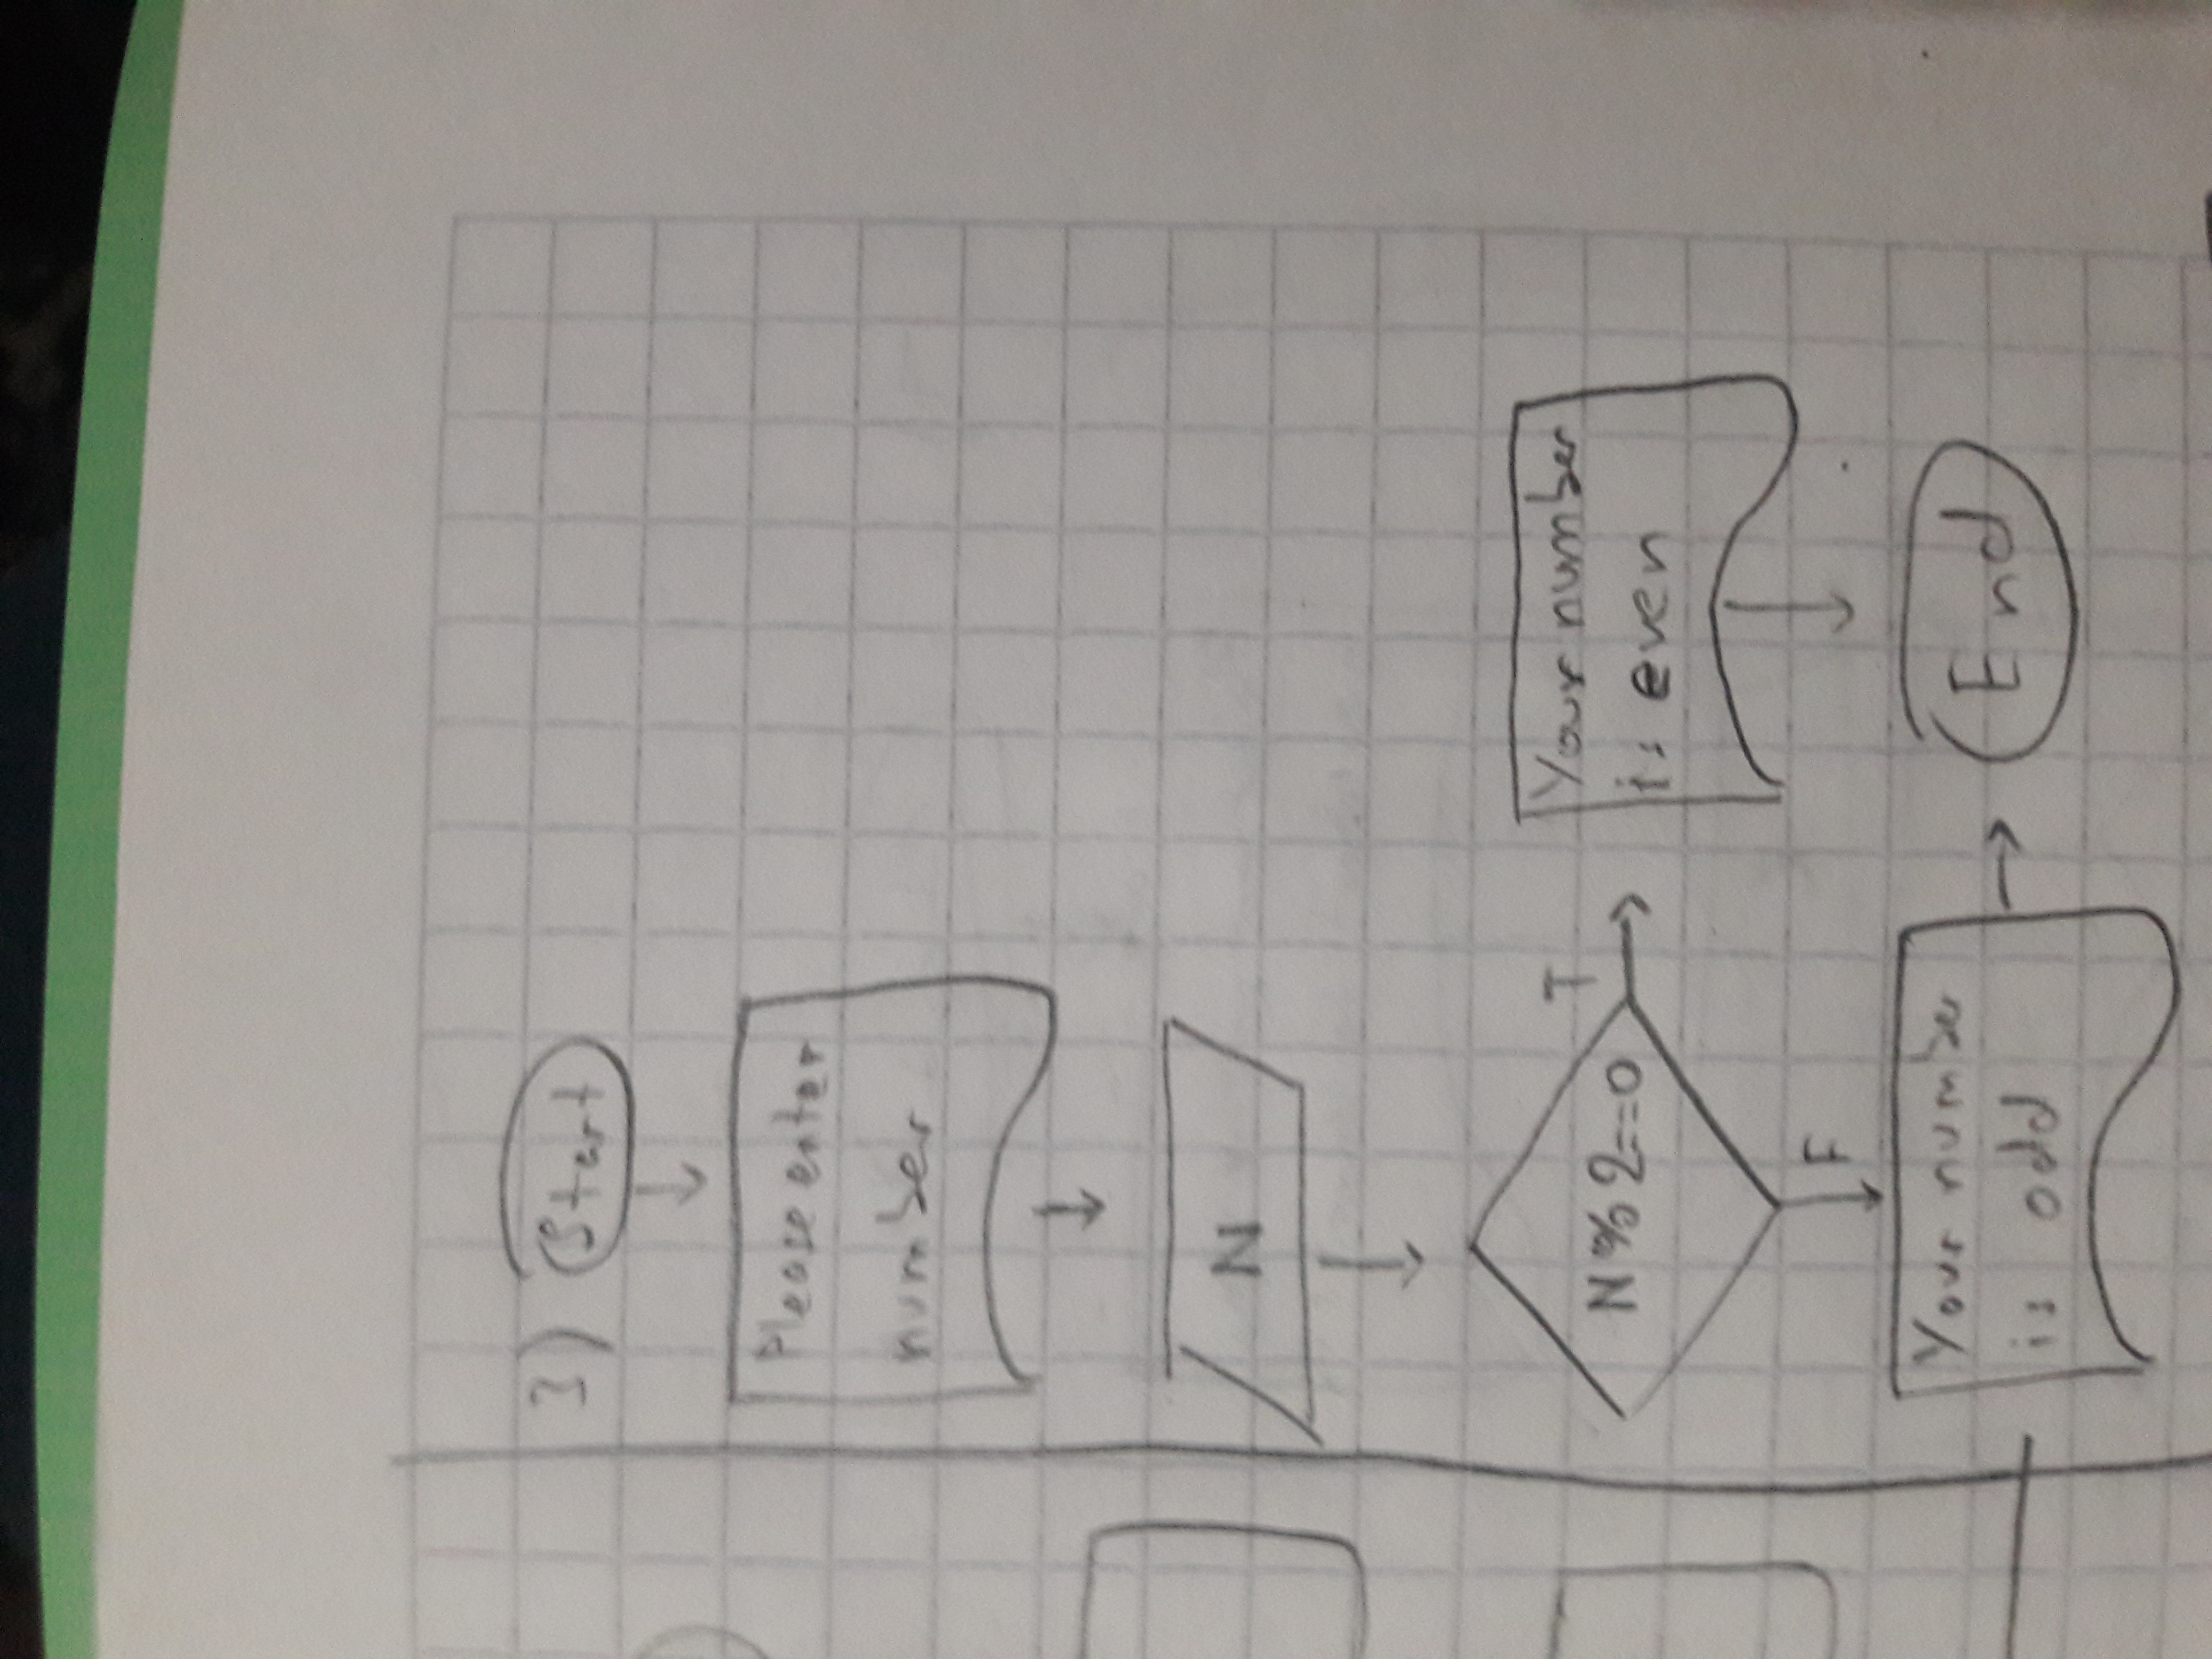 3) Start
Please enter
number
N
N%2==0
T
Your number
is even
F
Your number
is odd
End